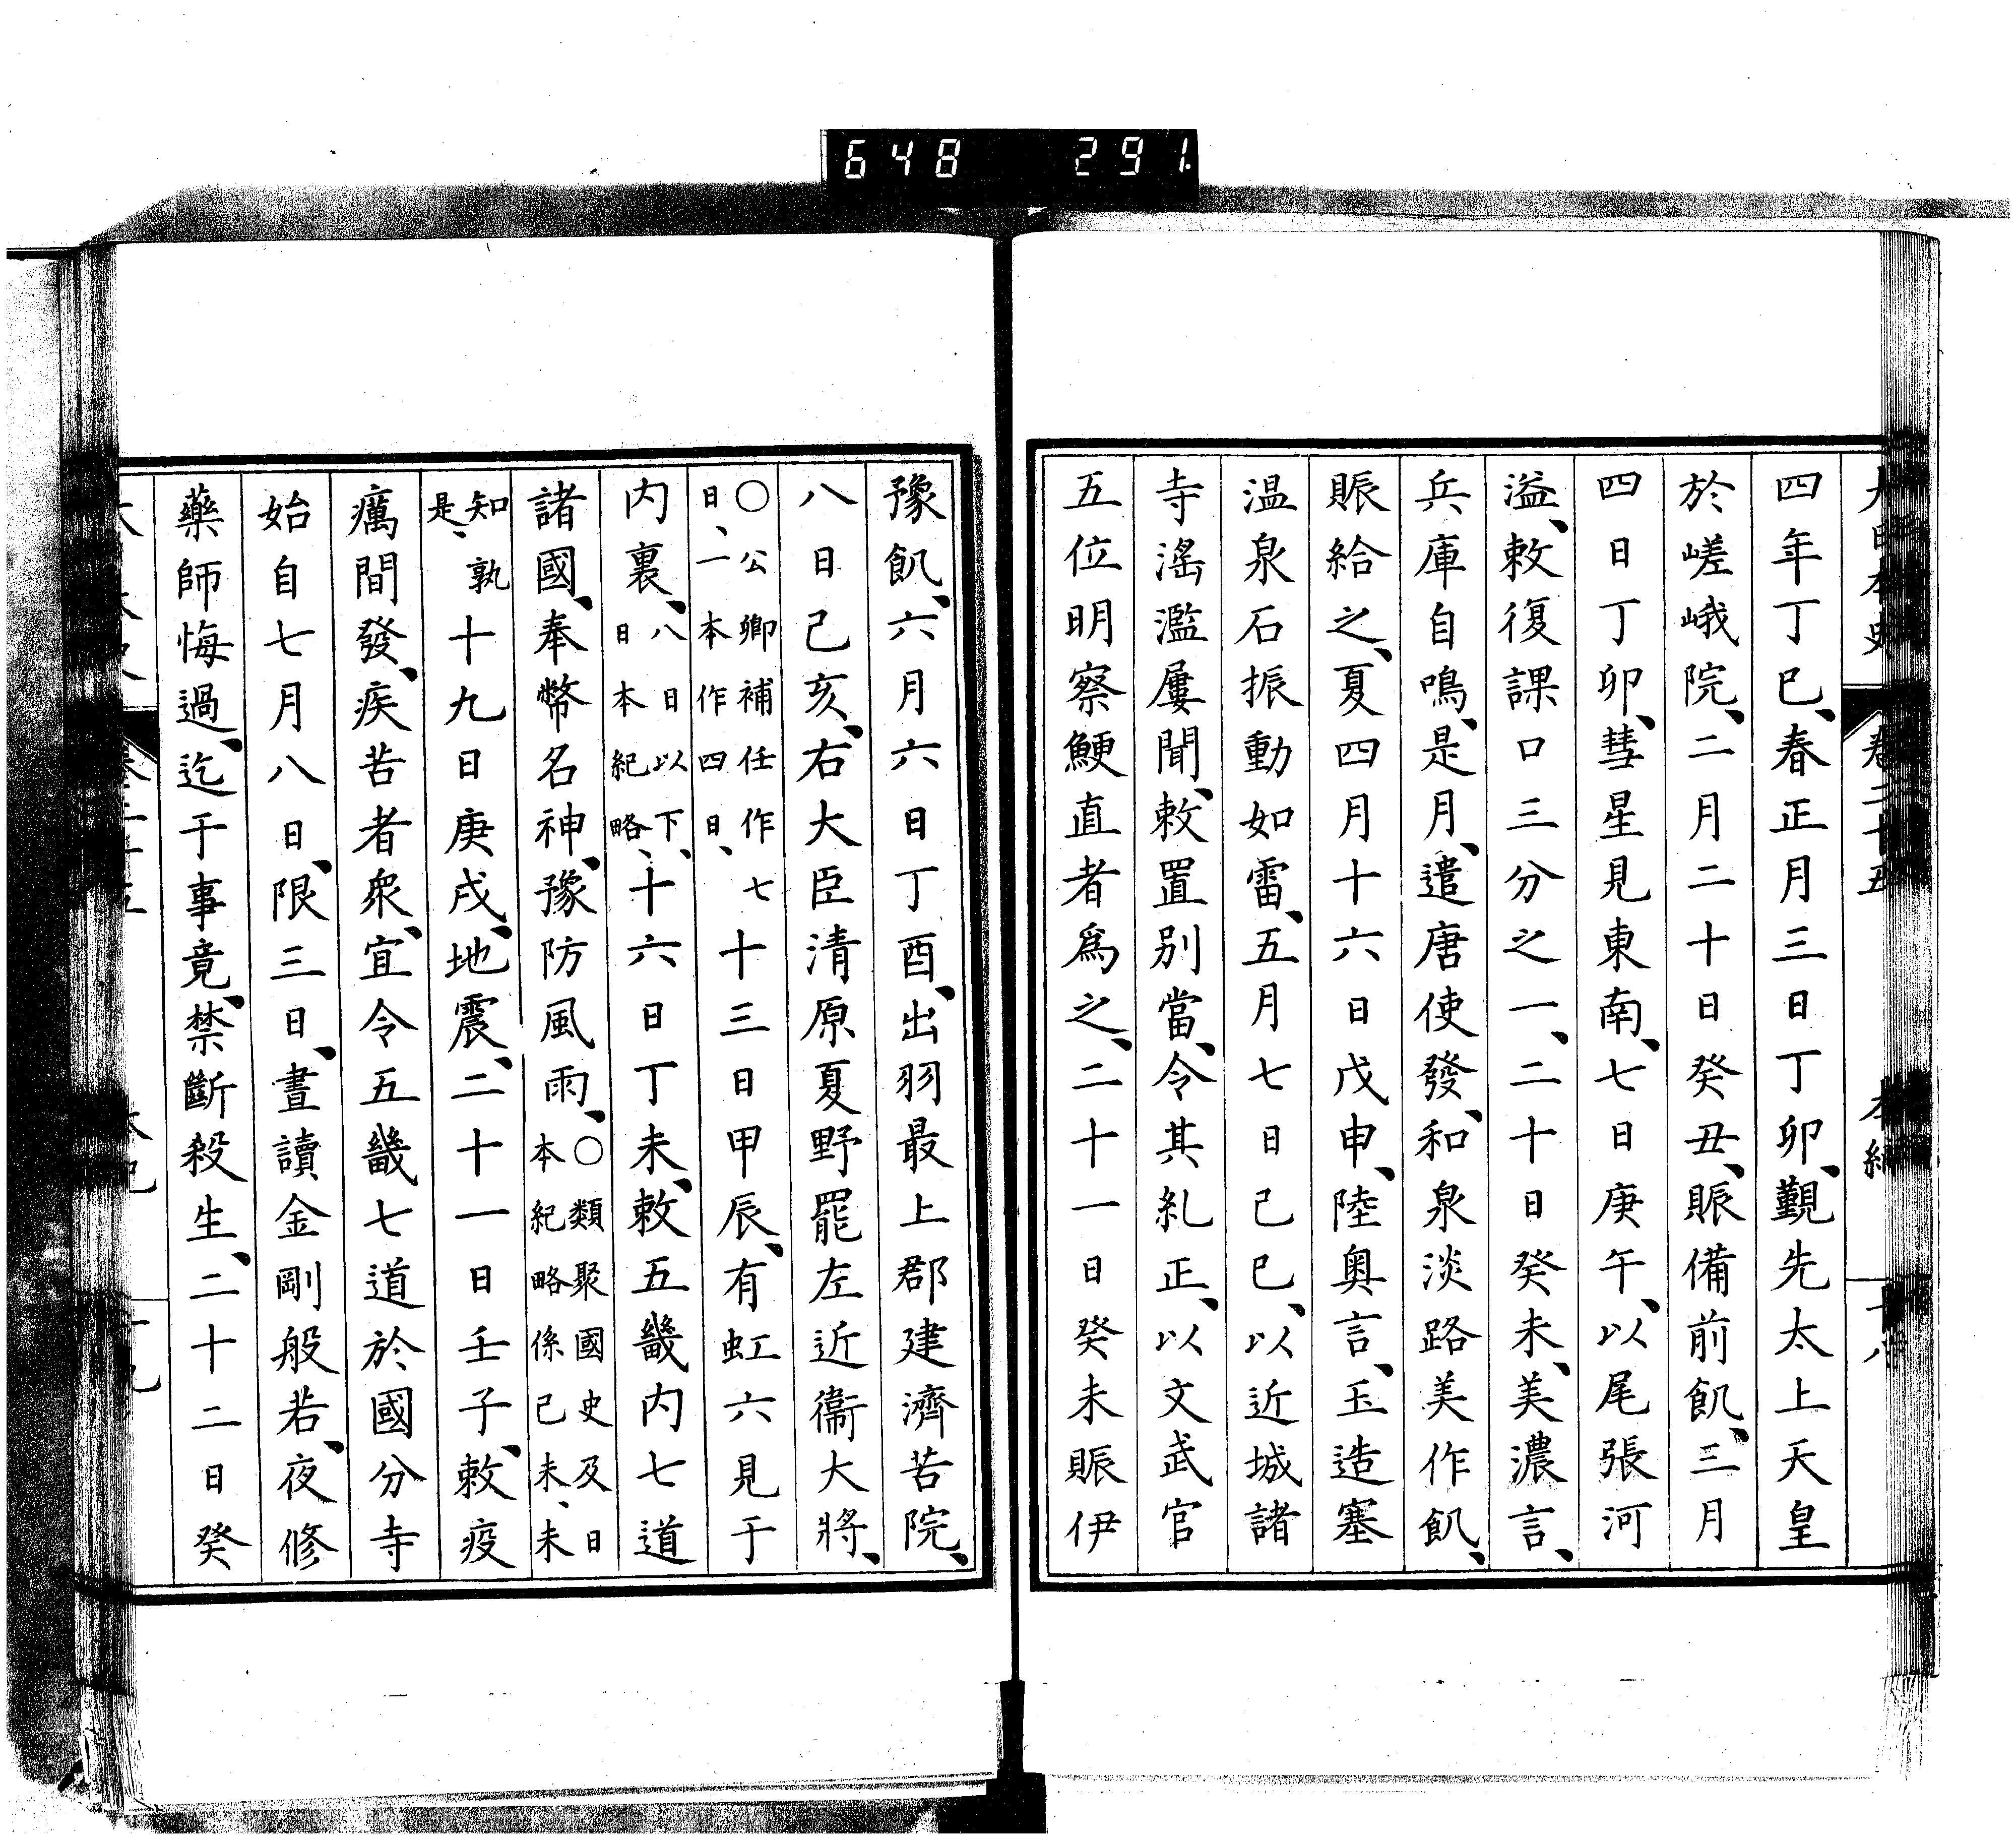 648 291
四年丁巳、春正月三日丁卯、覲先太上天皇
於嵯峨院、二月二十日癸丑、賑備前飢、三月
四日丁卯、彗星見東南、七日庚午、以尾張河
溢、敕復課口三分之一、二十日癸未、美濃言、
兵庫自鳴、是月、遣唐使發、和泉淡路美作飢、
賑給之、夏四月十六日戊申、陸奥言、玉造塞
温泉石振動如雷、五月七日己巳、以近城諸
寺濫屢聞、敕置別當、令其糺正、以文武官
五位明察鯁直者爲之、二十一日癸未賑伊
豫飢、六月六日丁酉、出羽最上郡建濟苦院、
八日己亥、右大臣清原夏野罷左近衞大將、
○公卿補任作七
日、一本作四日、
十三日甲辰、有虹六見于
内裏、
八日以下、
日本紀略、
十六日丁未、敕五畿内七道
諸國、奉幣名神、豫防風雨、
○類聚國史及日
本紀略係己未、未
知孰
是、
十九日庚戌、地震、二十一日壬子、敕疫
癘間發、疾苦者衆、宜令五畿七道於國分寺
始自七月八日、限三日、晝讀金剛般若、夜修
藥師悔過、迄于事竟、禁斷殺生、二十二日癸